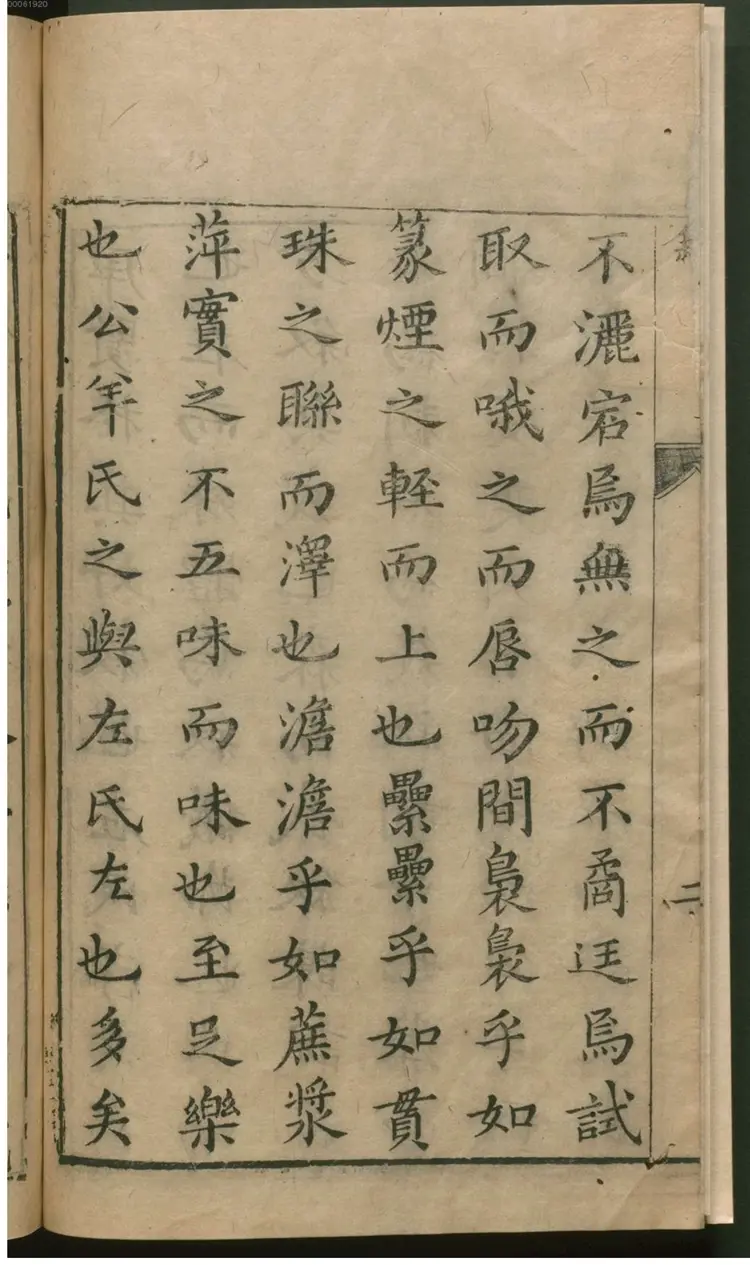 00061920
二
不灑宕焉無之而不矞迋焉試
取而哦之而唇吻間裊裊乎如
篆煙之輕而上也纍纍乎如貫
珠之聯而澤也澹澹乎如蔗漿
萍實之不五味而味也至足樂
也公羊氏之與左氏左也多矣